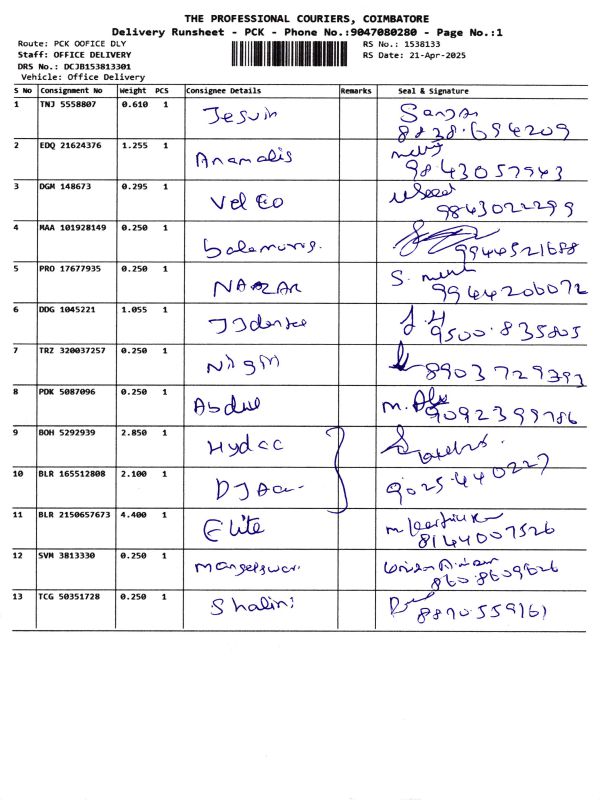 THE PROFESSIONAL COURIERS, COIMBATORE
Delivery Runsheet - PCK - Phone No.:9047080280 - Page No.:1
Route: PCK OOFICE DLY RS No.: 1538133
Staff: OFFICE DELIVERY RS Date: 21-Apr-2025
DRS No.: DCJB153813301
Vehicle: Office Delivery
S No Consignment No Weight PCS Consignee Details Remarks Seal & Signature
1 TNJ 5558807 0.610 1 Jesvin
8838.694209
2 EDQ 21624376 1.255 1 Anamalis
9843057943
3 DGM 148673 0.295 1 Vel Eo
9843022299
4 MAA 101928149 0.250 1
9944521688
5 PRO 17677935 0.250 1 NAAZAR S.
9944206072
6 DDG 1045221 1.055 1
9500.835805
7 TRZ 320037257 0.250 1
8903729393
8 PDK 5087096 0.250 1 Abdul M.
9092399786
9 BOH 5292939 2.850 1 Hydac
10 BLR 165512808 2.100 1
9025.440227
11 BLR 2150657673 4.400 1 Elite
8144007526
12 SVM 3813330 0.250 1
860.8609626
13 TCG 50351728 0.250 1 Shalini
8870.559161